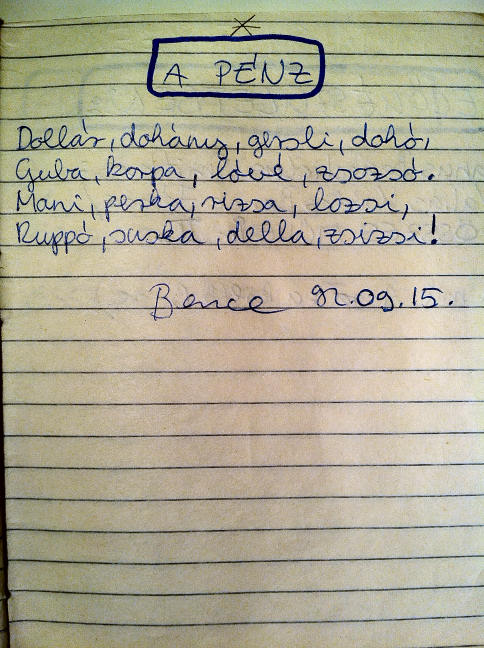 A PÉNZ
Dollár, dohány, gersli, dohó,
Guba, korpa, lóvé, zsozsó.
Mani, peska, rizsa, lozsi,
Ruppó, suska, della, zsizsi!
Bence 92.09.15.